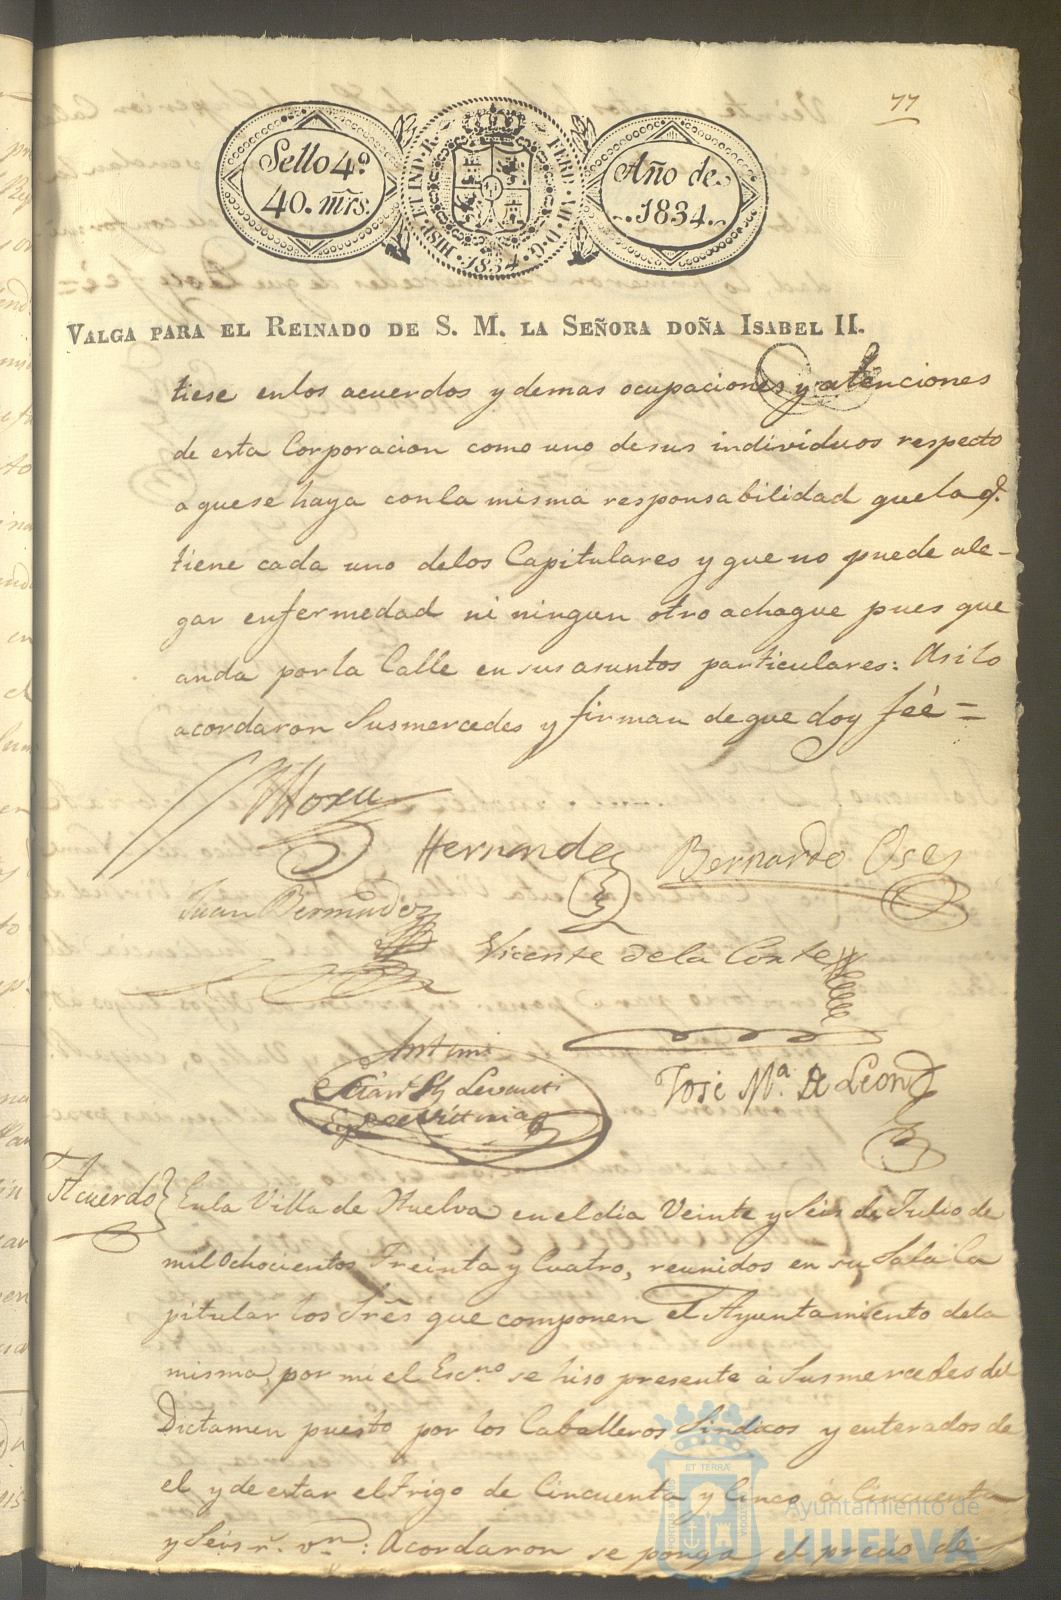 77
Sello 4º
40. mrs.
HISP. ET IND. R. FERD. VII. D. G. 1834
Año de
1834.
VALGA PARA EL REINADO DE S. M. LA SEÑORA DOÑA ISABEL II.
tiese enlos acuerdos y demas ocupaciones y atenciones
de esta Corporacion como uno desus individuos respecto
aquese haya conla misma responsabilidad quela q.
tiene cada uno delos Capitulares y que no puede ale-
gar enfermedad ni ningun otro achaque pues que
anda porla Calle en sus asuntos particulares: Asi lo
acordaron Susmercedes y firman deque doy feé =
Hernandez
Bernardo
Juan Bermudez
Vicente dela Corte
José Mª. de Leon
Acuerdo
Enla Villa de Huelva en el dia Veinte y Seis de Julio de
mil Ochocientos Treinta y Cuatro, reunidos en su Sala Ca
pitular los Sres que componen el Ayuntamiento dela
misma, por mi el Escno. se hiso presente á Susmercedes del
Dictamen puesto por los Caballeros Sindicos y enterados de
el y de estar el trigo de Cincuenta y Cinco á Cincuenta
y Seis r. vn: Acordaron se ponga el precio de
Ayuntamiento de
HUELVA